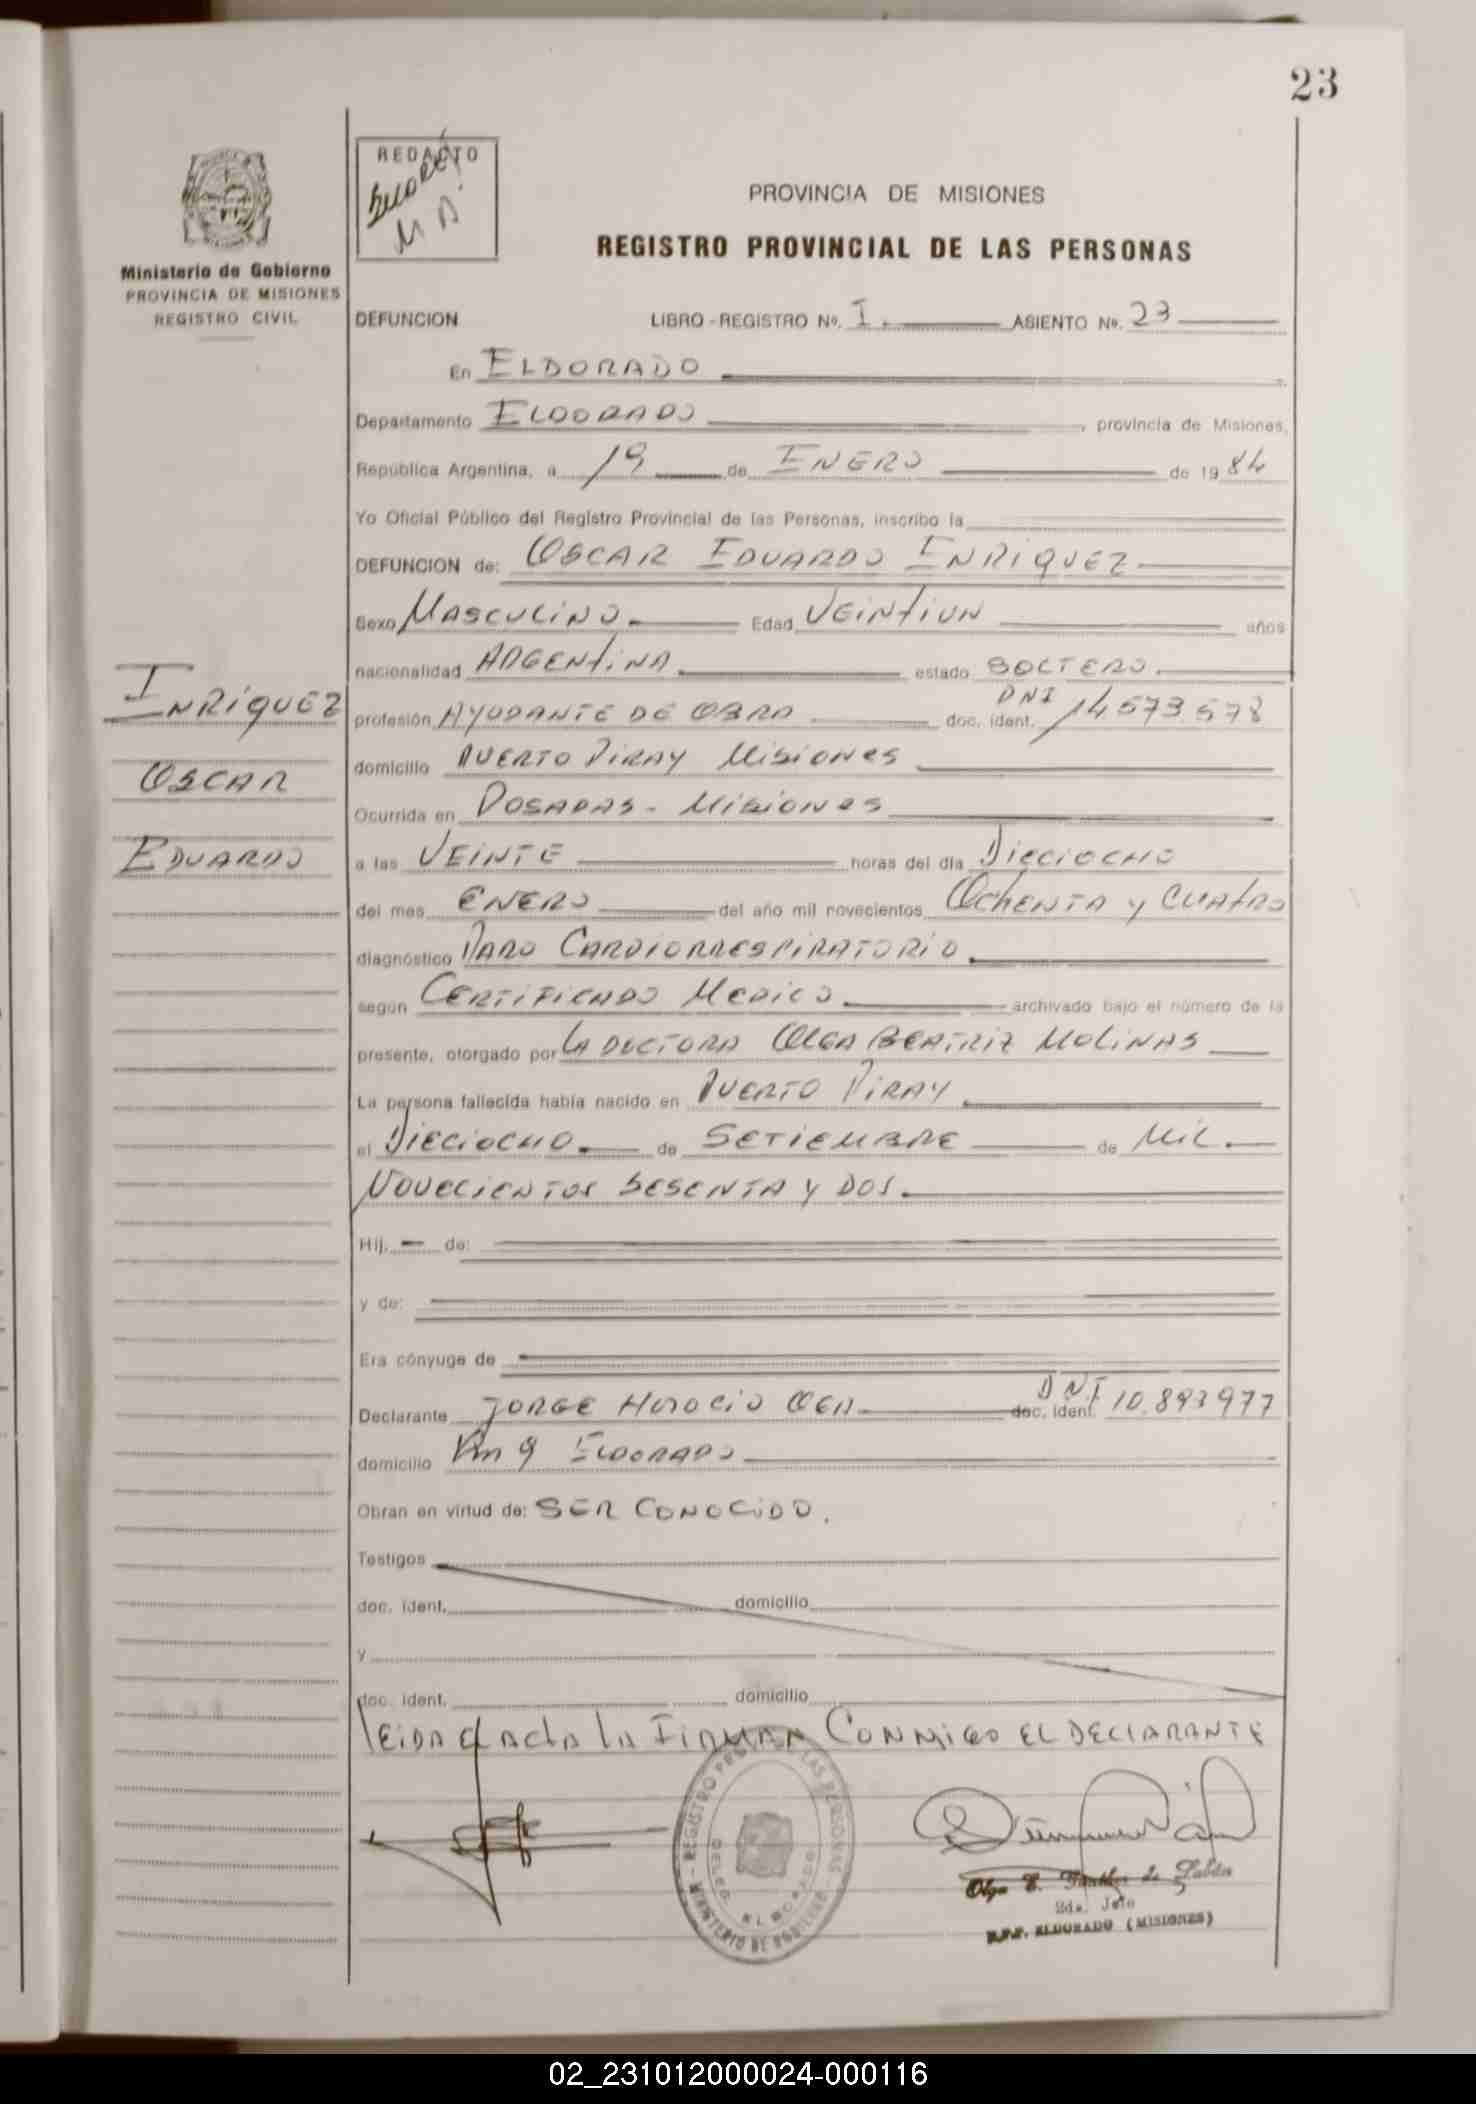 23
REDACTO
PROVINCIA DE MISIONES
REGISTRO PROVINCIAL DE LAS PERSONAS
Ministerio de Gobierno
PROVINCIA DE MISIONES
REGISTRO CIVIL
DEFUNCION LIBRO - REGISTRO Nº. I. ASIENTO Nº. 23
En ELDORADO
Departamento ELDORADO, provincia de Misiones,
República Argentina, a 19 de ENERO de 1984
Yo Oficial Público del Registro Provincial de las Personas, inscribo la
DEFUNCION de: OSCAR EDUARDO ENRIQUEZ
Sexo MASCULINO Edad VEINTIUN años
nacionalidad ARGENTINA estado SOLTERO.
ENRIQUEZ
OSCAR
EDUARDO
profesión AYUDANTE DE OBRA doc. ident. DNI 14573.578
domicilio PUERTO PIRAY MISIONES
Ocurrida en POSADAS - MISIONES
a las VEINTE horas del día DIECIOCHO
del mes ENERO del año mil novecientos OCHENTA Y CUATRO
diagnóstico PARO CARDIORRESPIRATORIO.
según CERTIFICADO MEDICO archivado bajo el número de la
presente, otorgado por LA DOCTORA OLGA BEATRIZ MOLINAS
La persona fallecida había nacido en PUERTO PIRAY
el DIECIOCHO de SETIEMBRE de MIL
NOVECIENTOS SESENTA Y DOS.
Hij. de:
y de:
Era cónyuge de
Declarante JORGE HORACIO doc. ident. DNI 10.893977
domicilio Km 9 ELDORADO
Obran en virtud de: SER CONOCIDO.
Testigos
doc. ident. domicilio
y
doc. ident. domicilio
LEIDA EL ACTA LA FIRMAN CONMIGO EL DECLARANTE
Olga E. de
2da. Jefe
R.P.P. ELDORADO (MISIONES)
02_231012000024-000116